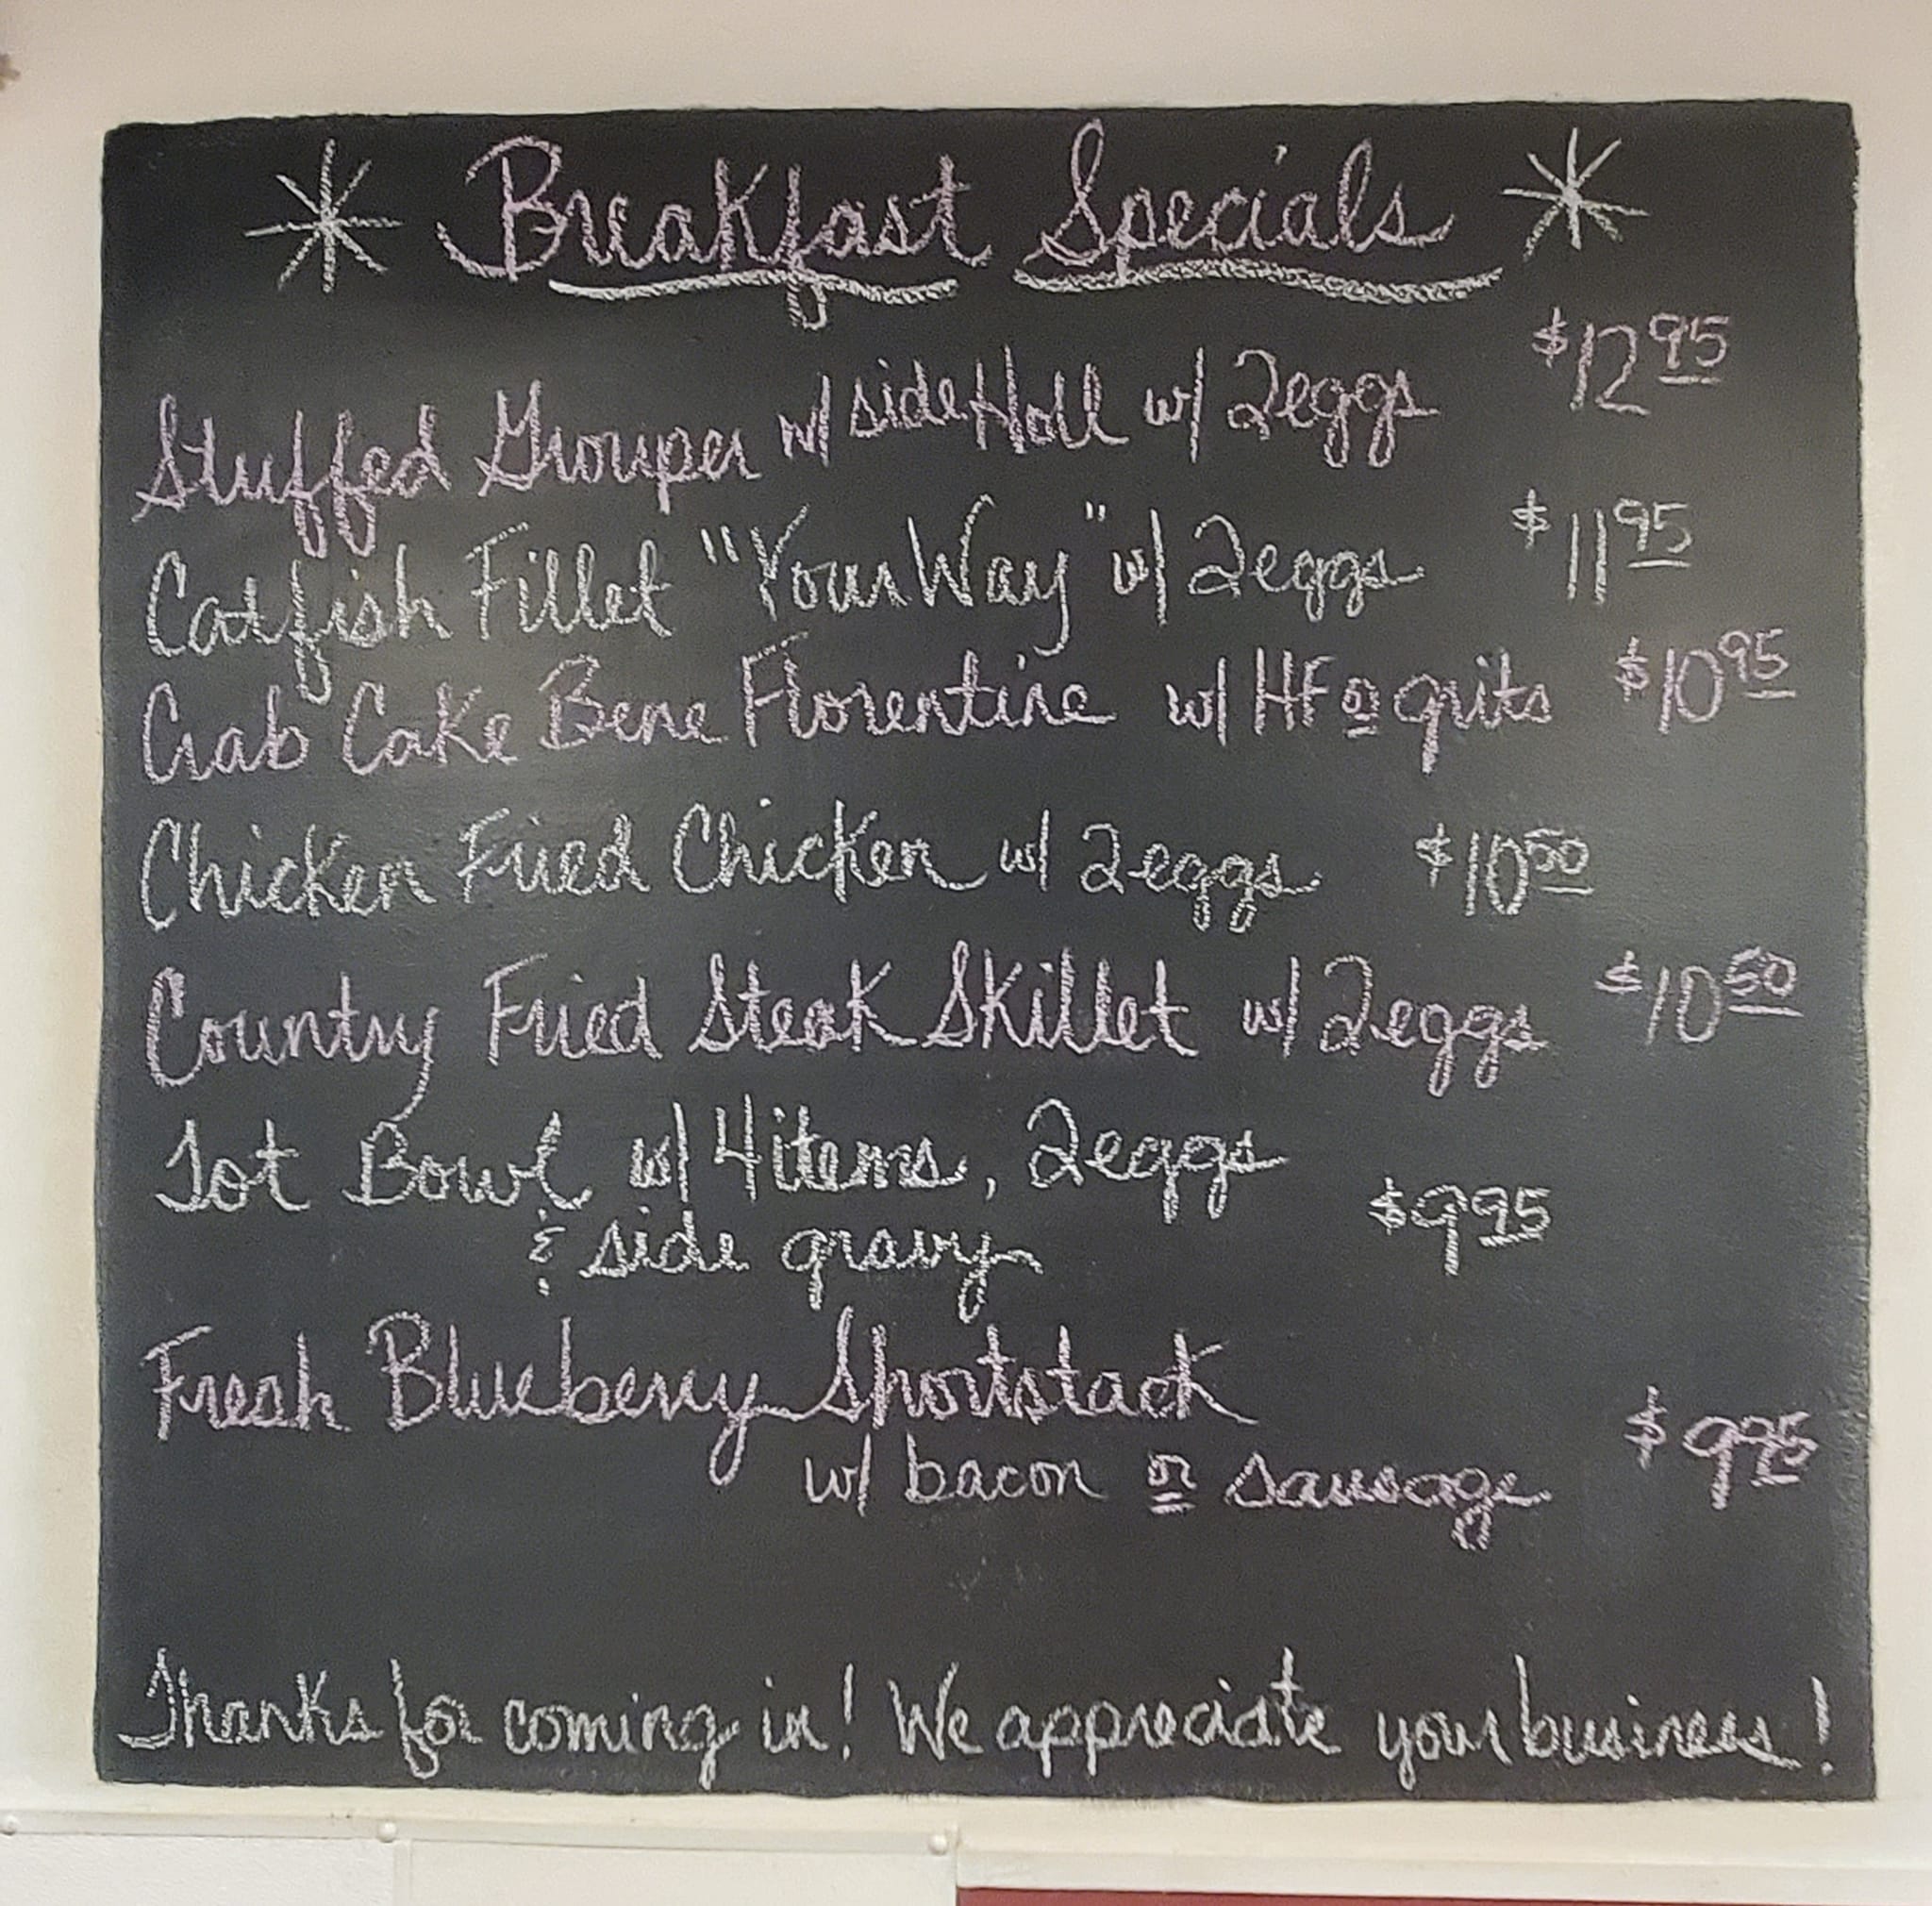 Breakfast Specials
Stuffed Grouper w/ side Holl w/ 2eggs $12 95
Catfish Fillet "Your Way" w/ 2eggs $11 95
Crab Cake Bene Florentine w/ HF or grits $10 95
Chicken Fried Chicken w/ 2eggs $10 50
Country Fried Steak Skillet w/ 2eggs $10 50
Tot Bowl w/ 4 items, 2eggs
& side gravy $9 95
Fresh Blueberry Shortstack
w/ bacon or sausage $9 95
Thanks for coming in! We appreciate your business!